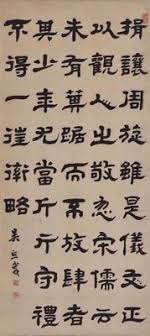 揖讓周旋雖是儀文正
以觀人之敬忽宋儒云
未有箕踞而不放肆者
其少年尤當斤斤守禮
不得一往𧗿略